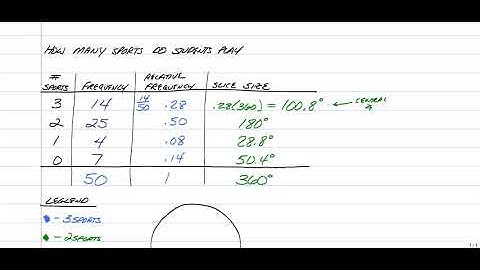 HOW MANY SPORTS DO STUDENTS PLAY
# SPORTS FREQUENCY RELATIVE FREQUENCY SLICE SIZE
3 14 14/50 .28 .28(360) = 100.8° ← CENTRAL ∡
2 25 .50 180°
1 4 .08 28.8°
0 7 .14 50.4°
50 1 360°
LEGEND
- 3 SPORTS
- 2 SPORTS